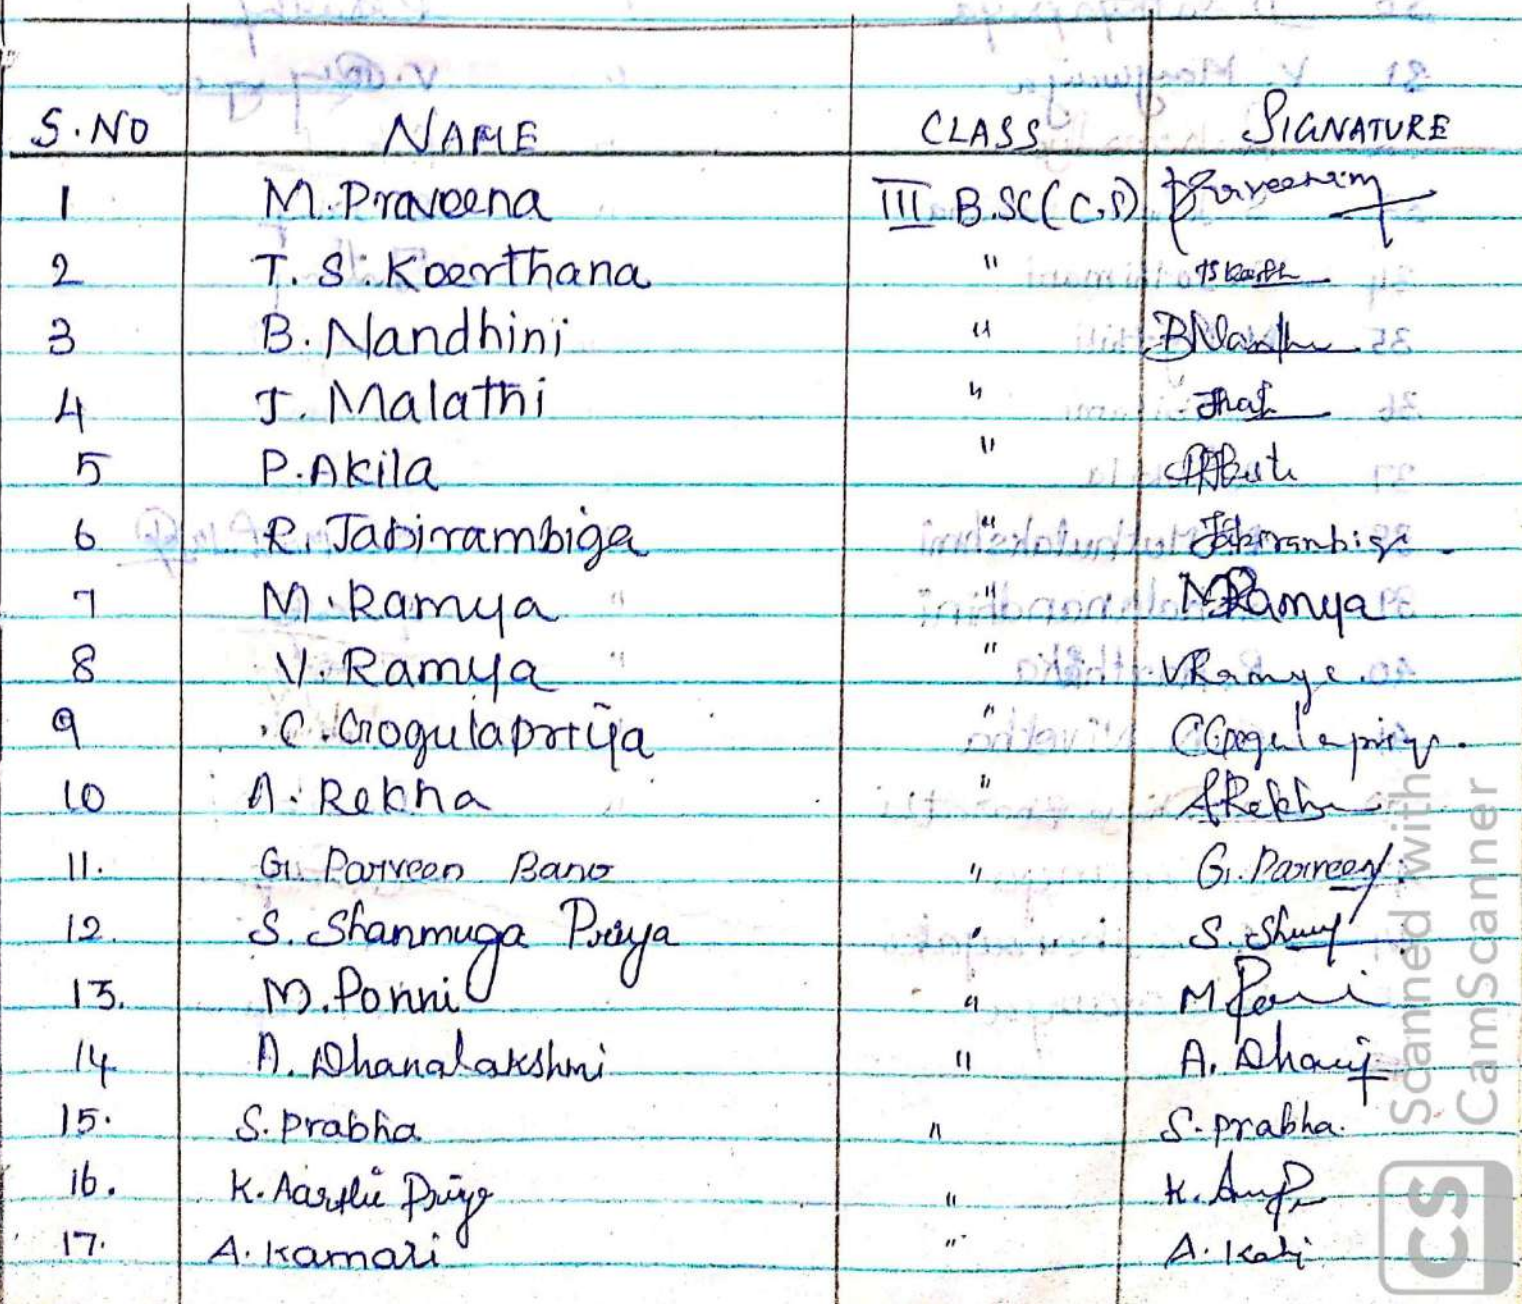 S.NO NAME CLASS SIGNATURE
1 M.Praveena III B.SC(C.S)
2 T.S.Keerthana "
3 B.Nandhini " BNandhu
4 J.Malathi "
5 P.Akila "
6 R.Jabirambiga " Jabirambiga.
7 M.Ramya " MRamya
8 V.Ramya " VRamya.
9 C.Gogulapriya " CGogulapriya.
10 A.Rekha " ARekha
11. G.Parveen Bano " G.Parveen
12. S.Shanmuga Priya "
13. M.Ponni " M
14. A.Dhanalakshmi " A.
15. S.Prabha " S.prabha.
16. K.Aarthi Priya " K.
17. A.Kamari " A.
Scanned with
CamScanner
CS